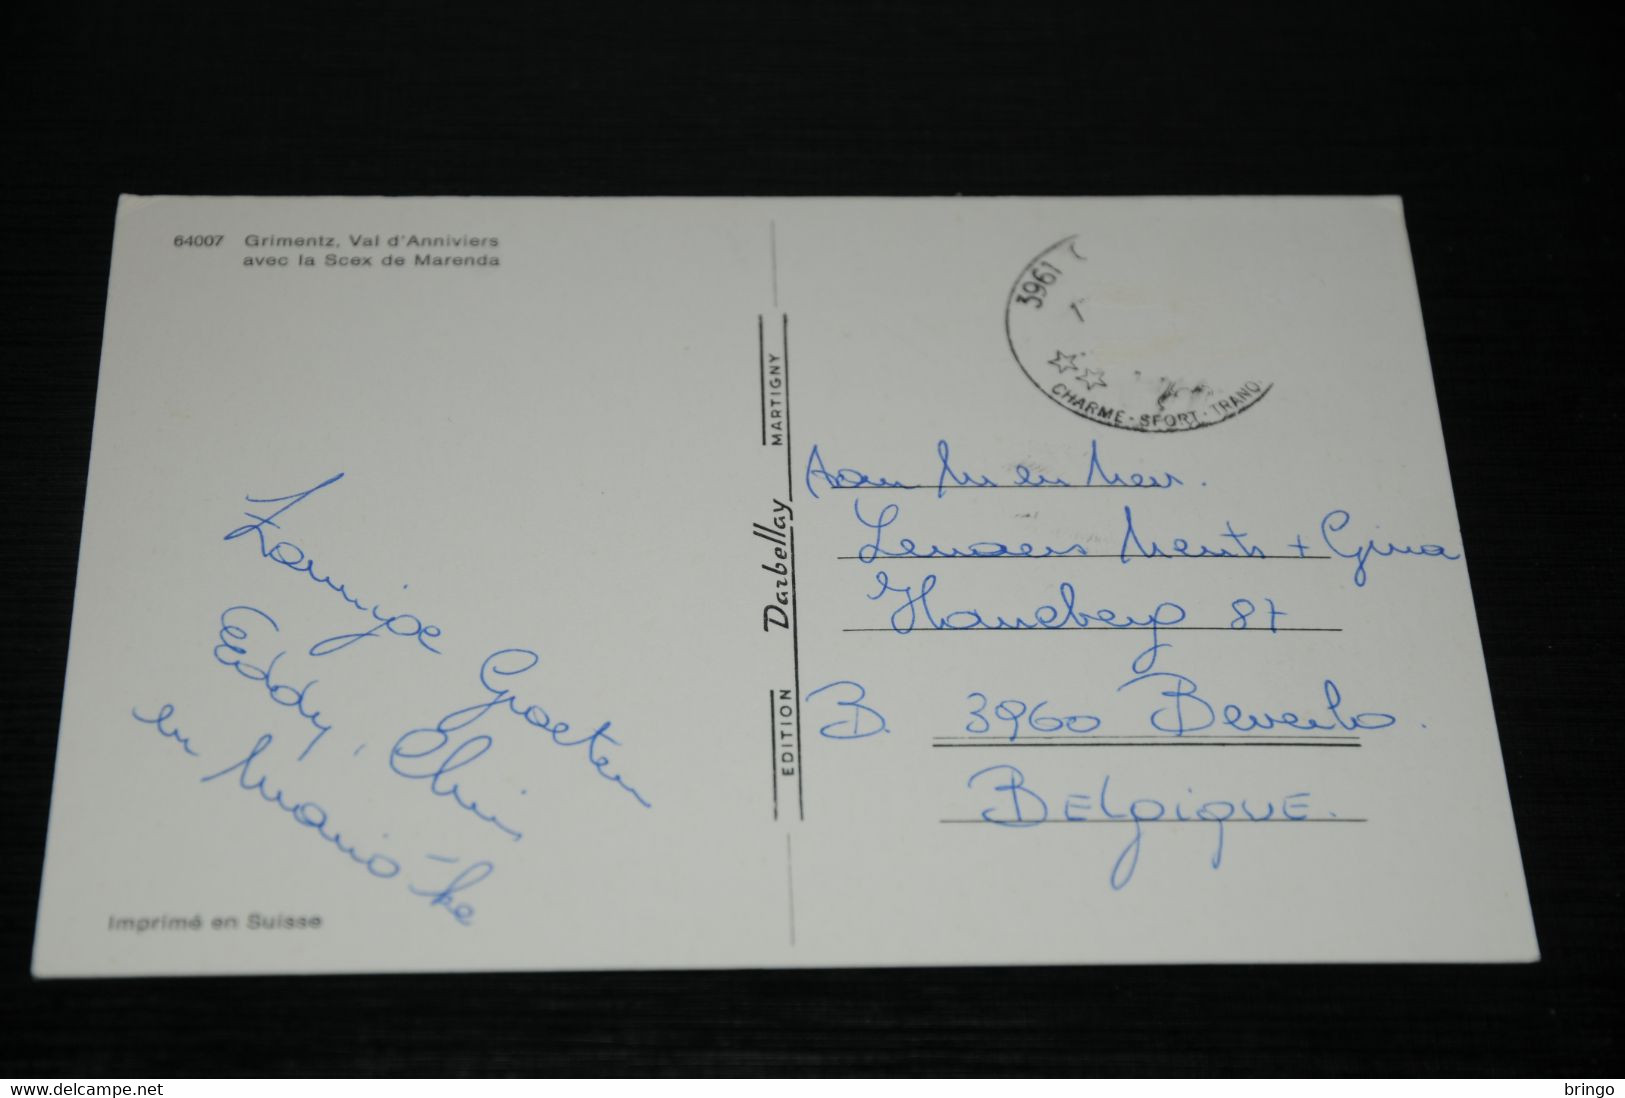 64007 Grimentz, Val d'Anniviers
avec la Scex de Marenda
Zonnige Groeten
Eddy, Chris
en Mario
Imprimé en Suisse
EDITION Darbellay MARTIGNY
3961
CHARME - SPORT - TRANQ
Aan en
Lenaers + Gina
87
B. 3960 Beverlo.
BELgiqUE.
delcampe.net
bringo